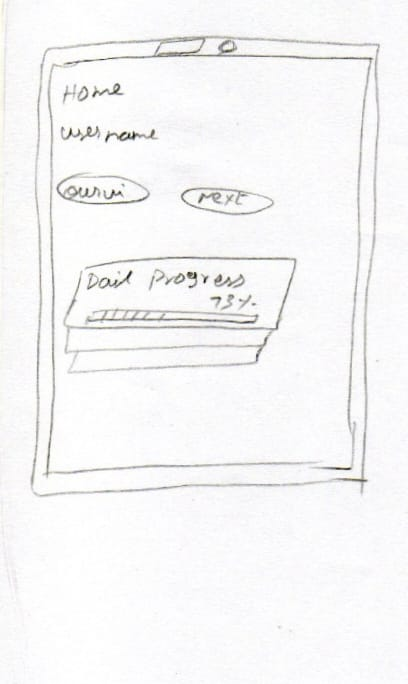 Home
username
ourvi next
Dail Progress
73%